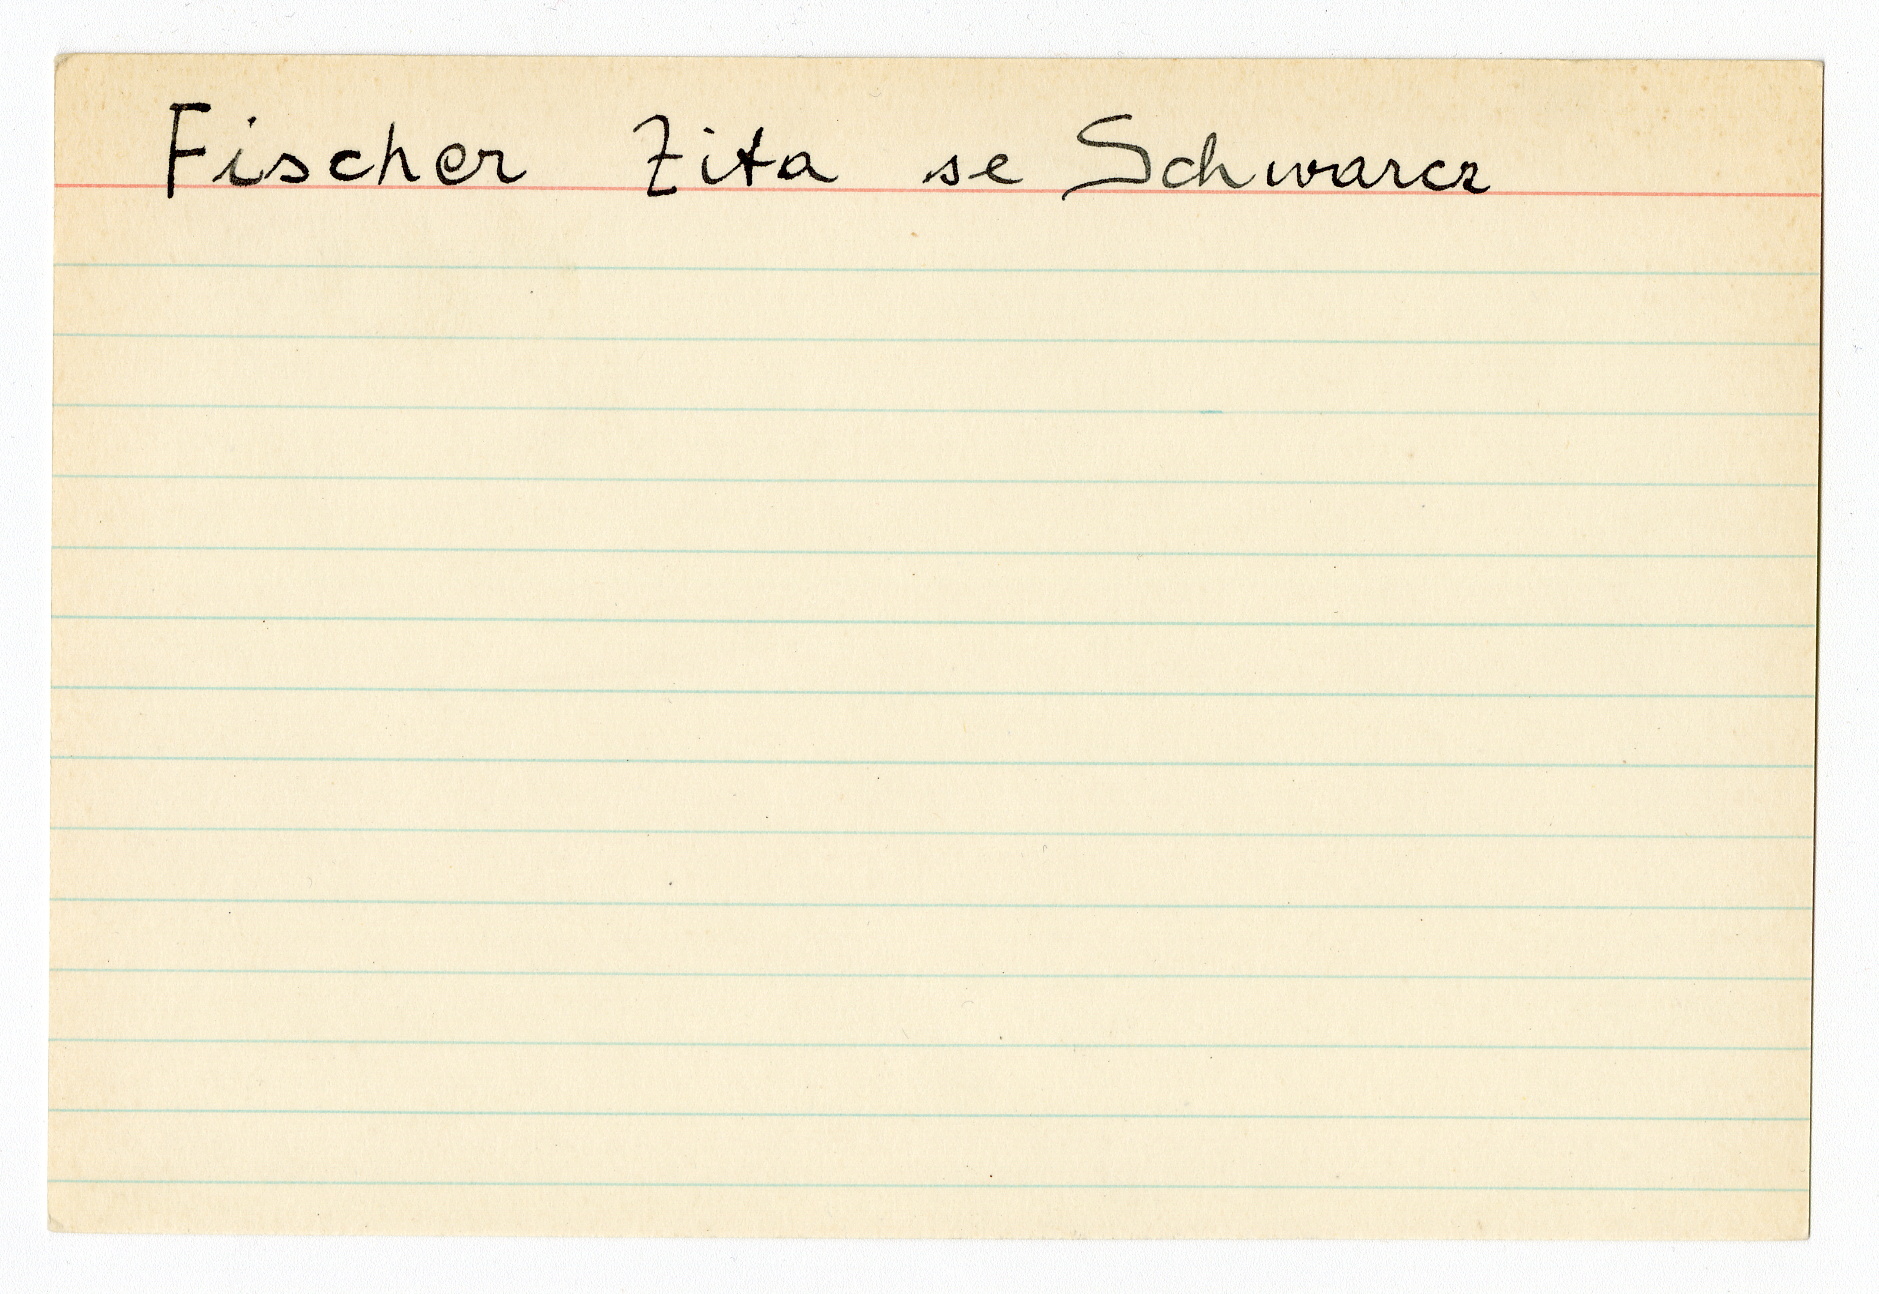 Fischer Zita se Schwarcz